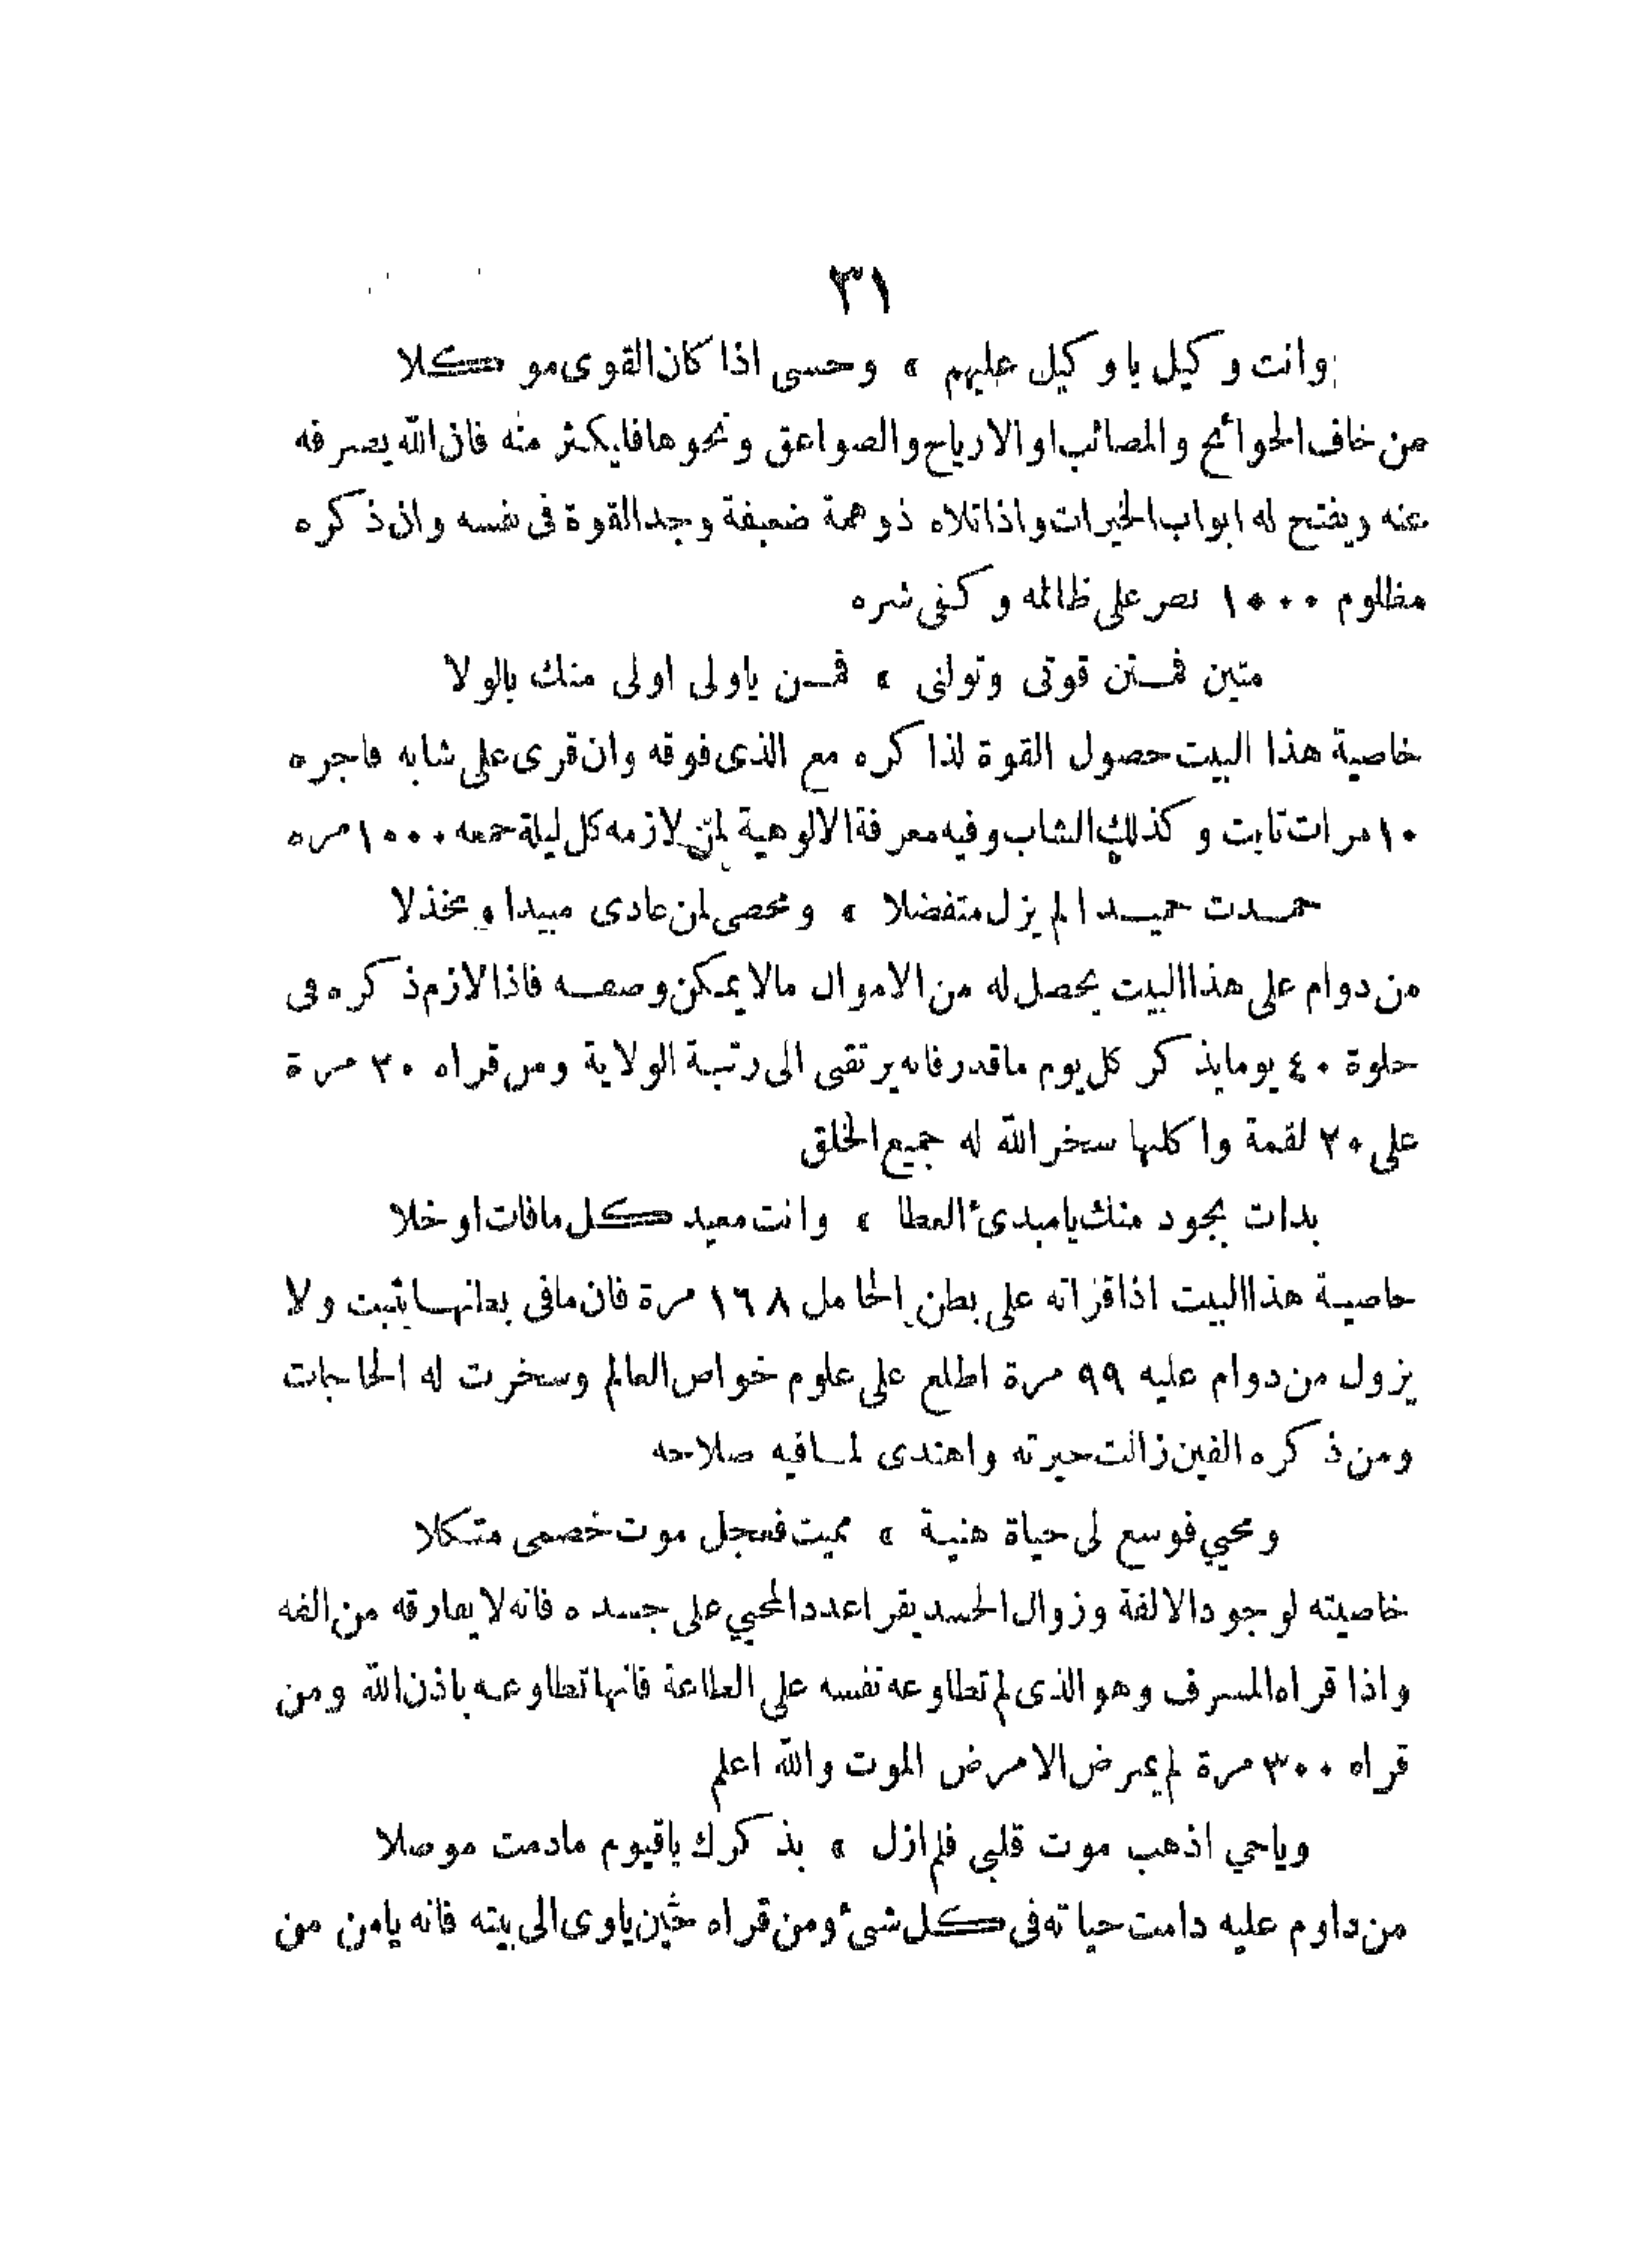 ٣١
وانت وكيل يا وكيل عليهم * وحسبى اذا كان القوى موكلا
من خاف الحوائج والمصائب او الارياح والصواعق ونحوها فايكثر منه فان الله يصرفه
عنه ويفتح له ابواب الخيرات واذا تلاه ذو همة ضعيفة وجد القوة فى نفسه وان ذكره
مظلوم ١٠٠٠ نصر على ظالمه وكفى شره
متين فمتن قوتى وتولنى * فمن ياولى اولى منك بالولا
خاصية هذا البيت حصول القوة لذاكره مع الذى فوقه وان قرى على شابه فاجره
١٠ مرات تابت وكذلك الشاب وفيه معرفة الالوهية لمن لازمه كل ليلة جمعه ١٠٠٠ مره
حمدت حميدا لم يزل متفضلا * ومحصى لمن عادى مبيدا ومخذلا
من دوام على هذا البيت يحصل له من الاموال مالا يمكن وصفه فاذا لازم ذكره فى
خلوة ٤٠ يوما يذكر كل يوم ماقدر فانه يرتقى الى رتبة الولاية ومن قراه ٣٠ مرة
على ٢٠ لقمة واكلها سخر الله له جميع الخلق
بدات بجود منك يا مبدئ العطا * وانت معيد كل مافات او خلا
خاصية هذا البيت اذا قراته على بطن الحامل ١٦٨ مرة فان مافى بطنها يثبت ولا
يزول من دوام عليه ٩٩ مرة اطلع على علوم خواص العالم وسخرت له الحاجات
ومن ذكره الفين زالت حيرته واهتدى لما فيه صلاحه
ومحيي فوسع لى حياة هنية * مميت فعجل موت خصمى متكلا
خاصيته لوجود الالفة وزوال الحسد يقرا عدد المحيي على جسده فانه لا يفارقه من الفه
واذا قراه المسرف وهو الذى لم تطاوعه نفسه على الطاعة فانها تطاوعه باذن الله ومن
قراه ٣٠٠ مرة لم يمرض الا مرض الموت والله اعلم
وياحي اذهب موت قلبي فلم ازل * بذكرك ياقيوم مادمت موصلا
من داوم عليه دامت حياته فى كل شئ ومن قراه حين ياوى الى بيته فانه يامن من